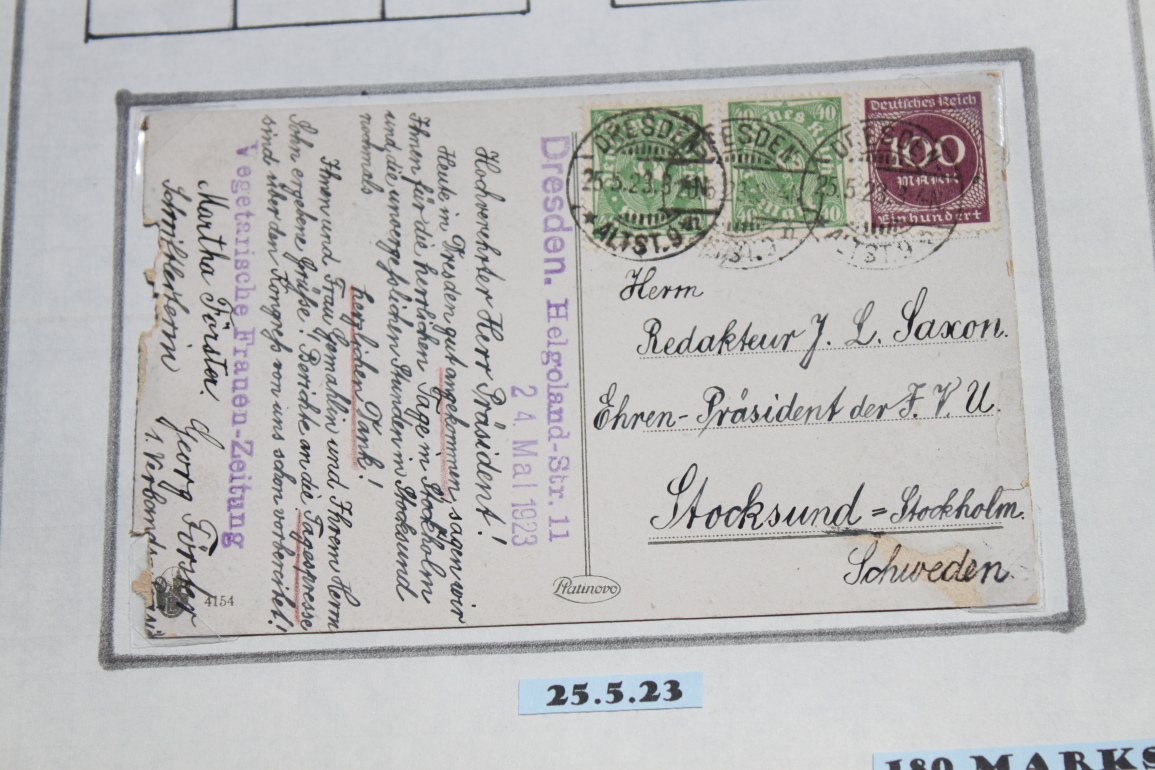 Dresden. Helgoland-Str. 11
24. Mai 1923
Hochverehrter Herr Präsident!
Heute in Dresden gut angekommen, sagen wir
Ihnen für die herrlichen Tage in Stockholm
und die unvergeßlichen Stunden in Stocksund
nochmals
herzlichen Dank!
Ihnen und Frau Gemahlin und Ihrem Herrn
Sohn ergebene Grüße. Berichte an die Tagespresse
sind über den Kongreß von uns schon vorbereitet!
Vegetarische Frauen-Zeitung
Martha Förster Georg Förster
Schriftleiterin 1. Verbands
4154
Platinovo
40
40
40
Deutsches Reich
100
MARK
Einhundert
DRESDEN
25.5.23.
* ALTST. 9
DRESDEN
DRESDEN
25.5.23
ALTST. 9
Herrn
Redakteur J. L. Saxon.
Ehren-Präsident der F. V. U.
Stocksund = Stockholm.
Schweden.
25.5.23
180 MARKS